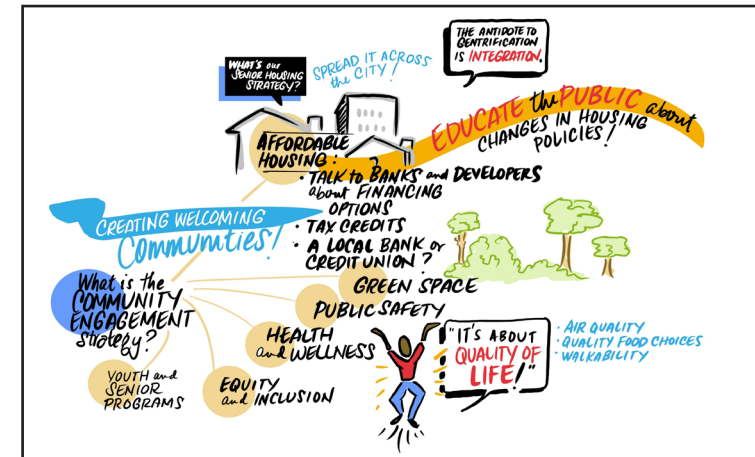 WHAT'S our
SENIOR HOUSING
STRATEGY?
SPREAD IT ACROSS
the CITY!
THE ANTIDOTE TO
GENTRIFICATION
IS INTEGRATION.
EDUCATE the PUBLIC about
CHANGES IN HOUSING
POLICIES!
AFFORDABLE
HOUSING:
• TALK to BANKS and DEVELOPERS
about FINANCING
OPTIONS
• TAX CREDITS
• A LOCAL BANK or
CREDIT UNION?
CREATING WELCOMING
Communities!
What is the
COMMUNITY
ENGAGEMENT
Strategy?
GREEN SPACE
PUBLIC SAFETY
HEALTH
and WELLNESS
EQUITY
and INCLUSION
YOUTH and
SENIOR
PROGRAMS
"IT'S ABOUT
QUALITY OF
LIFE!"
• AIR QUALITY
• QUALITY FOOD CHOICES
• WALKABILITY